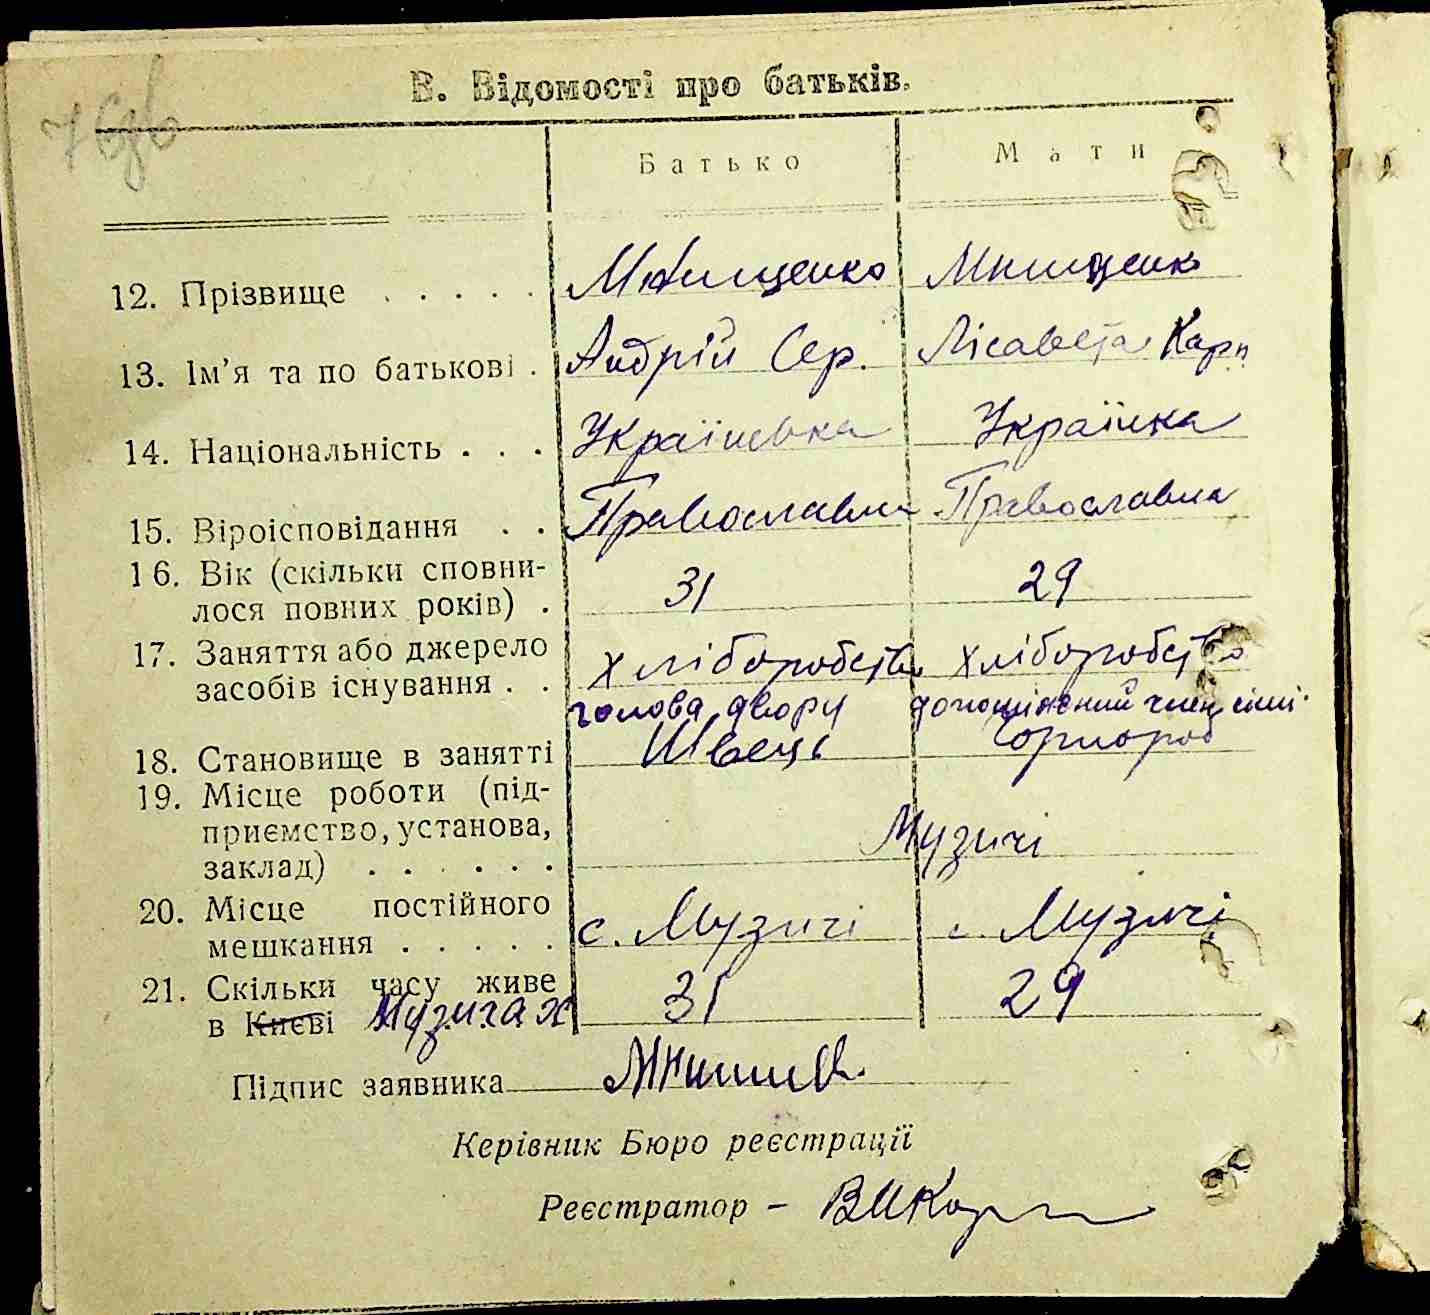 В. Відомості про батьків.
Батько Мати
12. Прізвище . . . . . Мнищенко
13. Ім’я та по батькові . Андрій Сер. Лісавета Карп
14. Національність . . . Українська Українка
15. Віроісповідання . . Православна Православна
16. Вік (скільки сповни-
лося повних років) . 31 29
17. Заняття або джерело
засобів існування . . хліборобство хліборобство
голова двору член сімї
18. Становище в занятті Швець Чорнороб
19. Місце роботи (під-
приємство, установа,
заклад) . . . . . . Музичі
20. Місце постійного
мешкання . . . . . с. Музичі с. Музичі
21. Скільки часу живе
в Києві Музичах 31 29
Підпис заявника
Керівник Бюро реєстрації
Реєстратор –